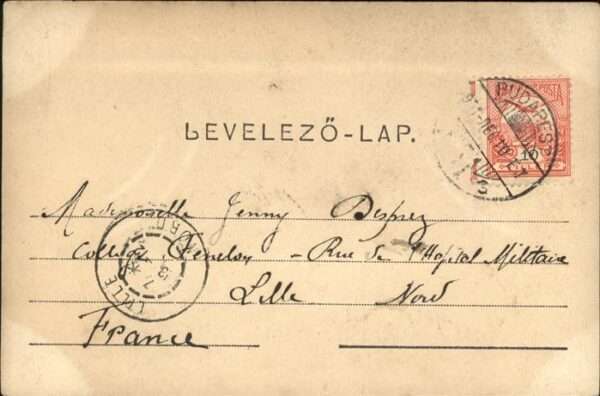 BUDAPEST
10
LEVELEZŐ-LAP.
Mademoiselle Jenny Desprez
Collège Fénelon - Rue de l'Hôpital Militaire
Lille Nord
France
LILLE
NORD